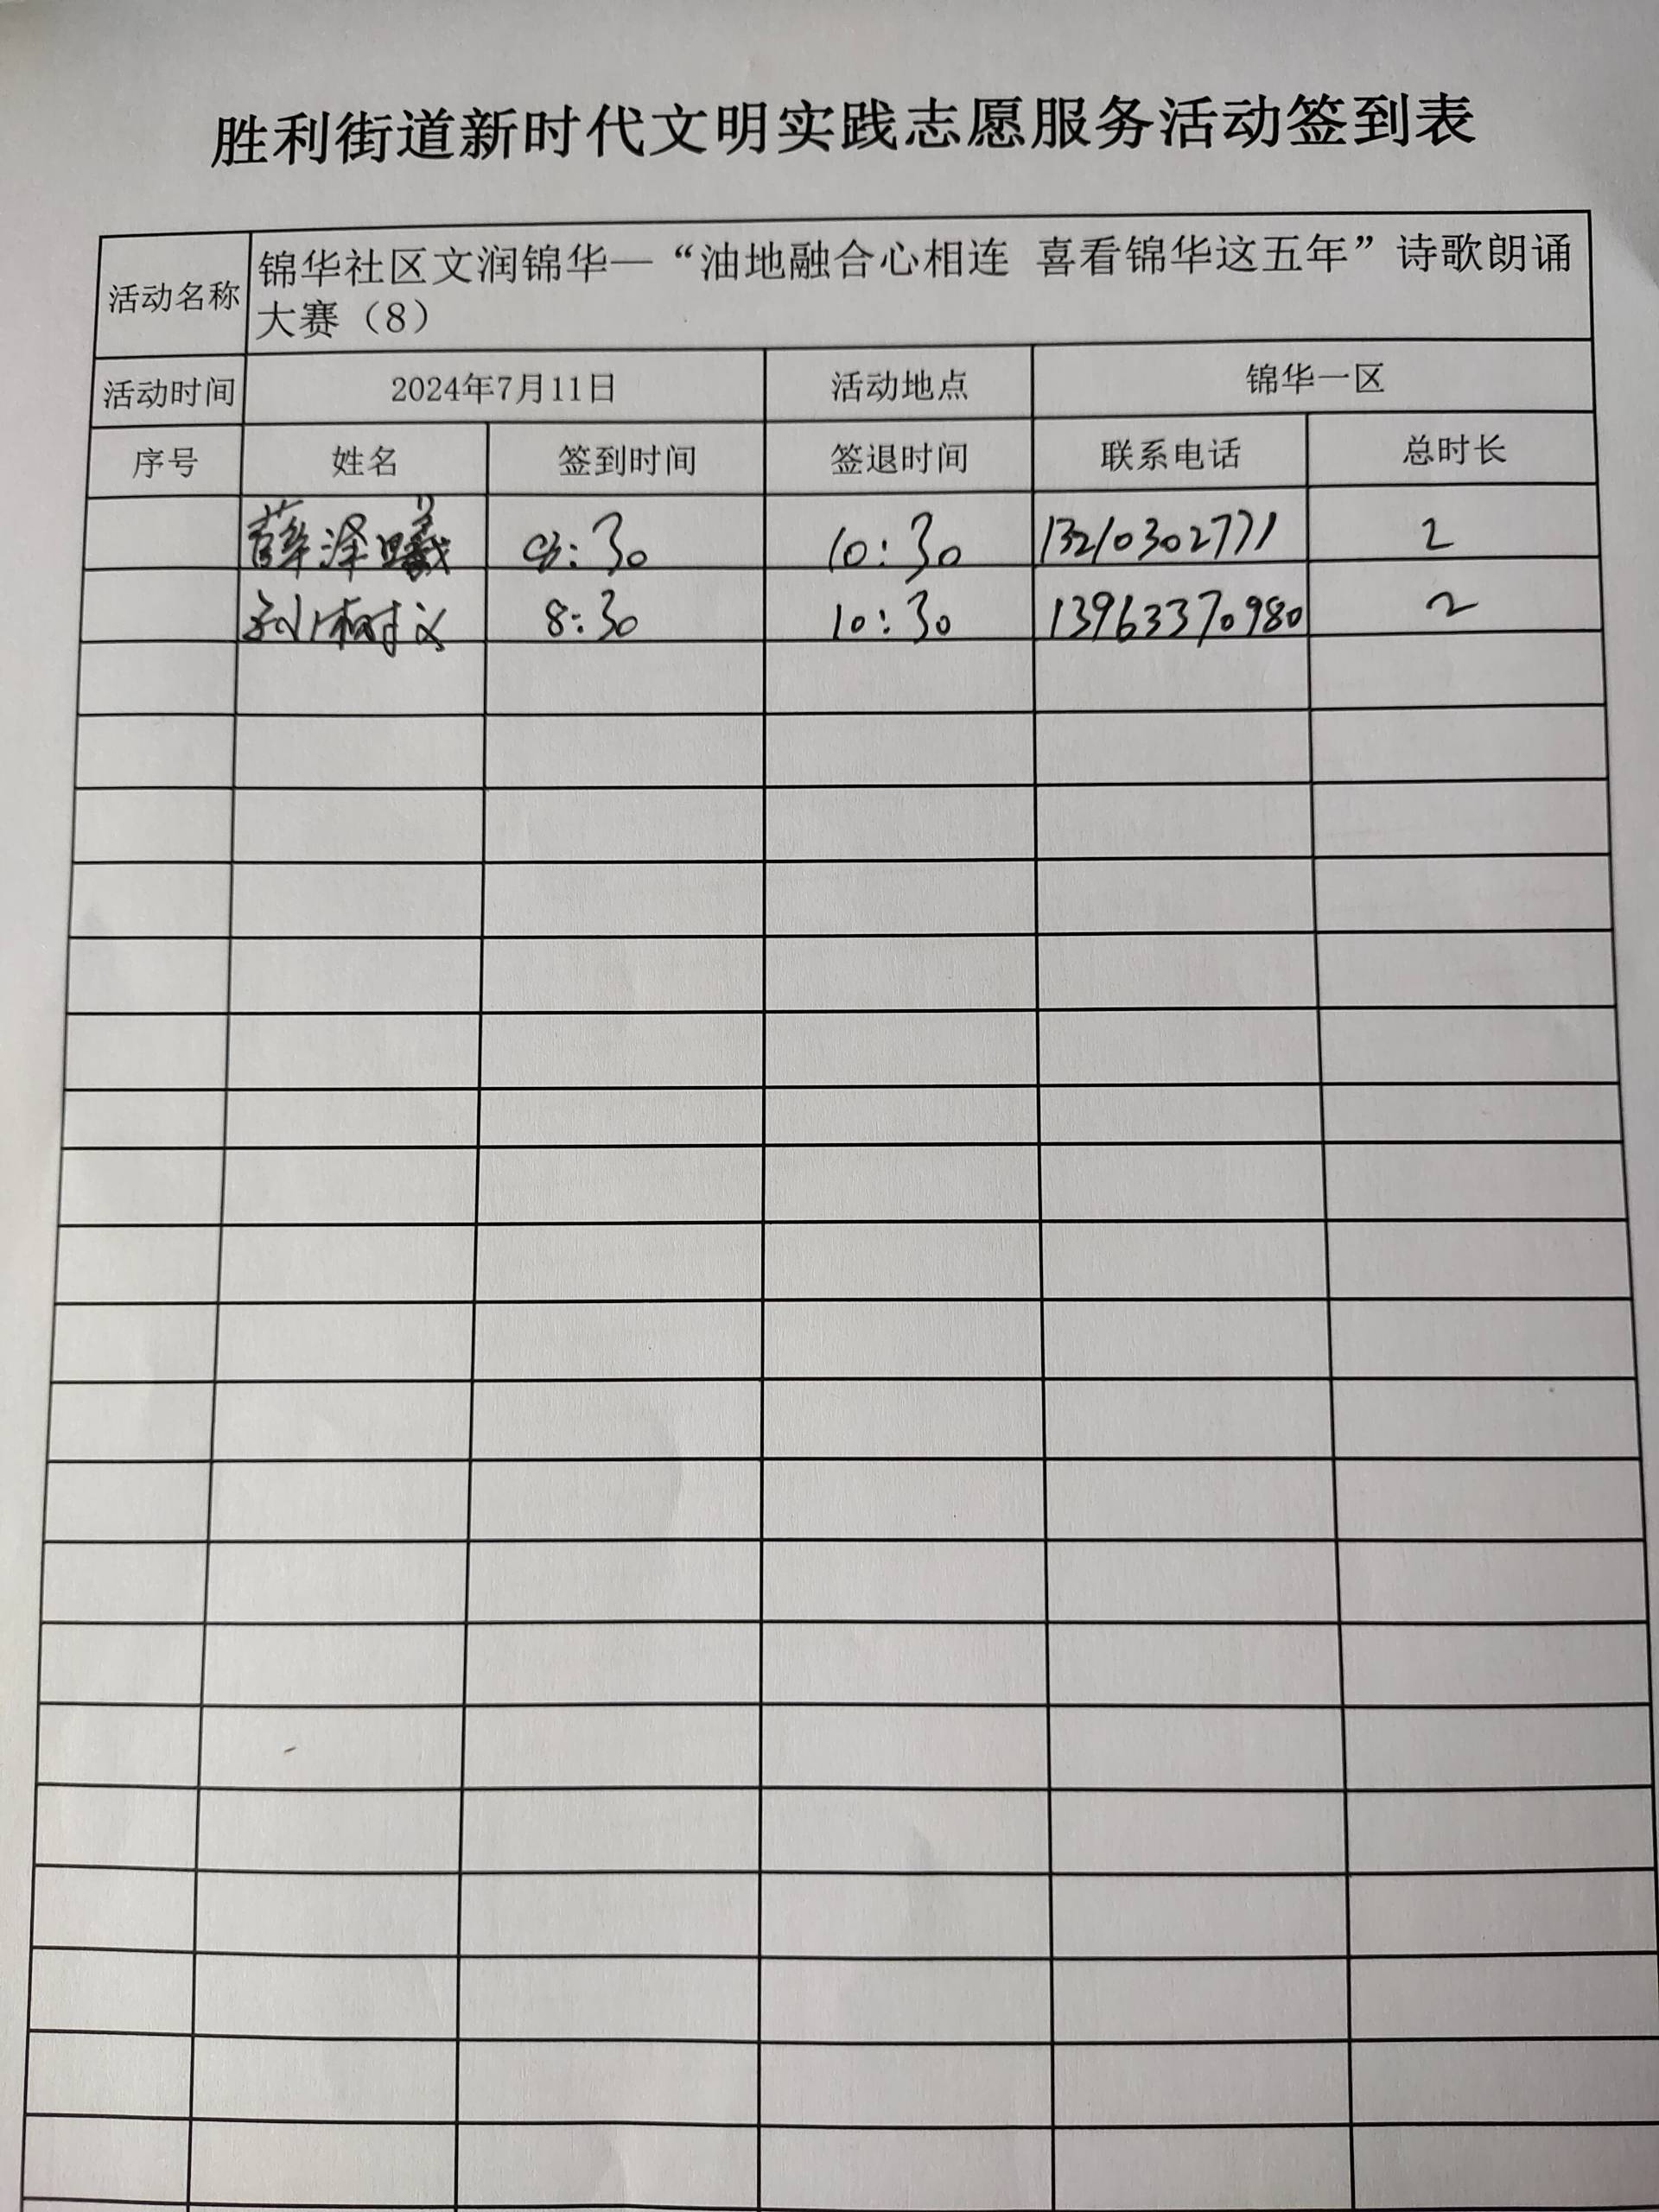 胜利街道新时代文明实践志愿服务活动签到表
活动名称 锦华社区文润锦华—“油地融合心相连 喜看锦华这五年”诗歌朗诵
大赛（8）
活动时间 2024年7月11日 活动地点 锦华一区
序号 姓名 签到时间 签退时间 联系电话 总时长
薛泽曦 8:30 10:30 13210302771 2
孙树义 8:30 10:30 13963370980 2